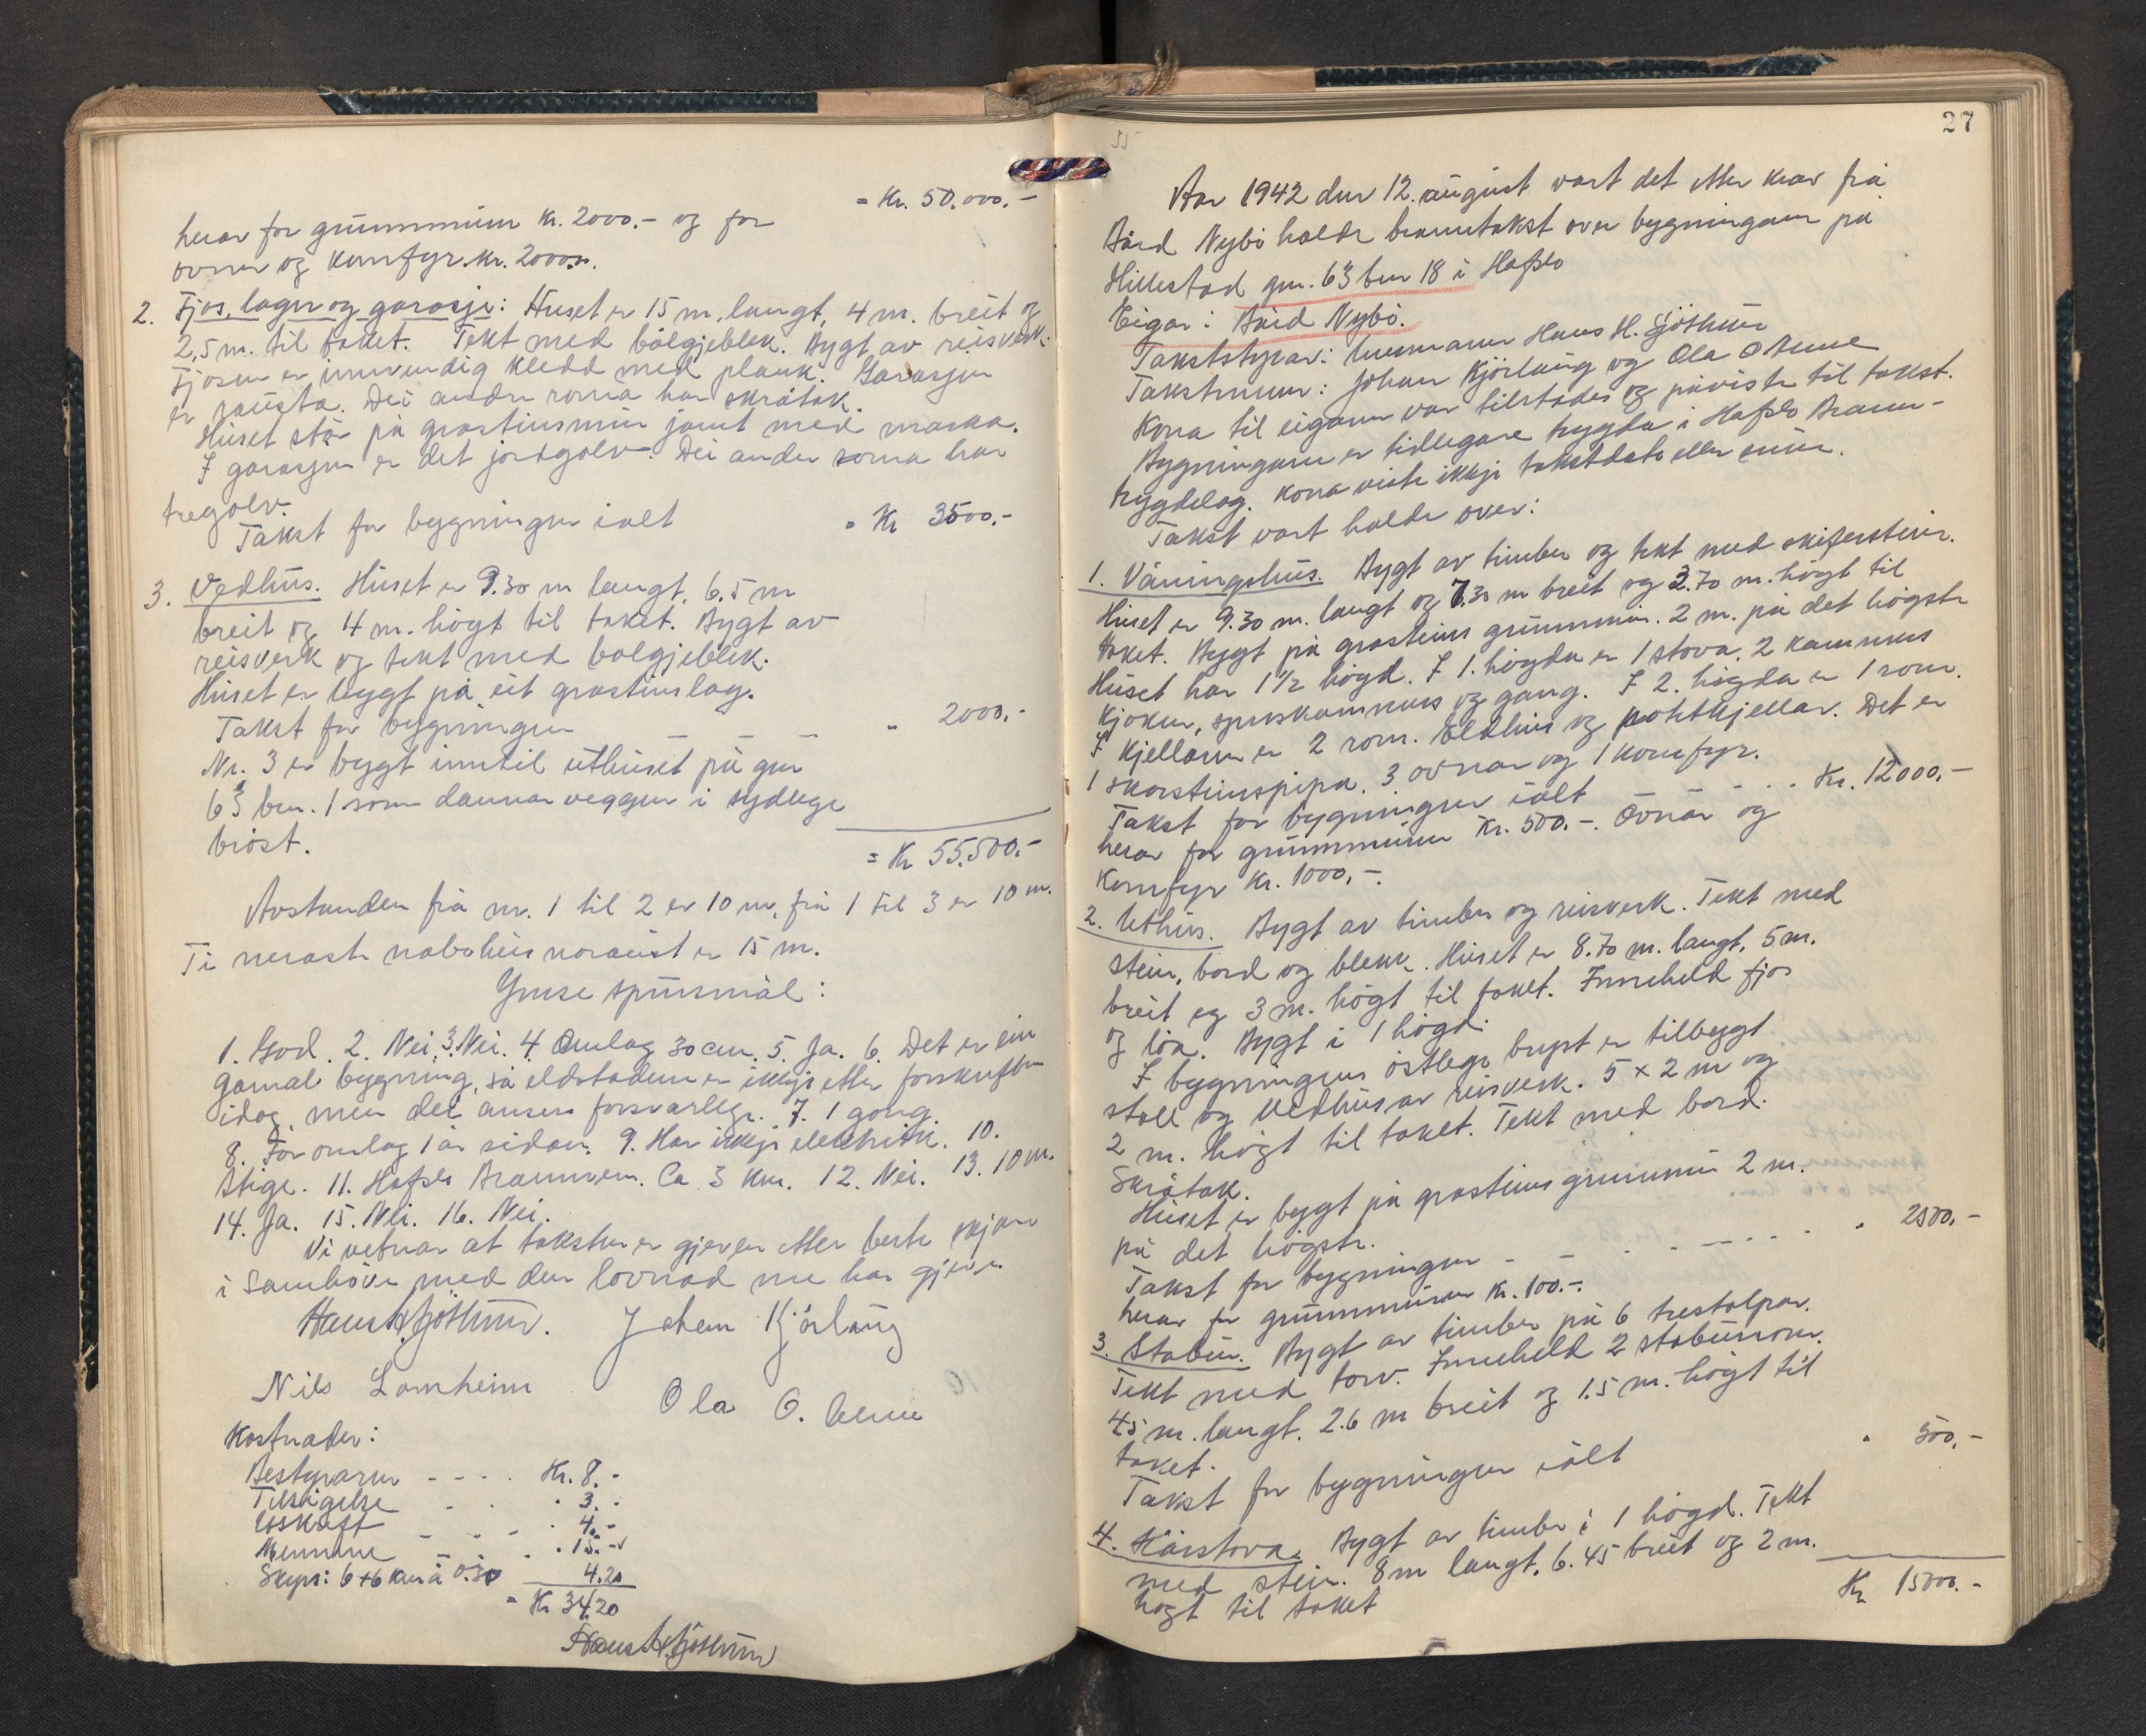 = Kr. 50.000.-
herav for grunnmuren kr. 2000.- og for
ovnar og komfyr kr. 2000.-.
2. Fjos, lager og garasje: Huset er 15 m. langt, 4 m. breit og
2,5 m. til taket. Tekt med bölgjeblek. Bygt av reisverk.
Fjosen er innvendig kledd med plank. Garasjen
er panelt. Dei andre roma har skråtak.
Huset står på grasteinsmur jamt med marka.
I garasjen er det jordgolv. Dei andre roma har
tregolv.
Takst for bygningen ialt = Kr 3500.-
3. Vedhus. Huset er 9.30 m langt, 6.5 m
breit og 4 m. högt til taket. Bygt av
reisverk og tekt med bolgjeblek.
Huset er bygt på eit grasteinslag.
Takst for bygningen - - - " 2000.-
Nr. 3 er bygt inntil uthuset på gnr
63 bnr. 1 som dannar veggen i sydlege
bröst.
= Kr 55.500.-
Avstanden frå nr. 1 til 2 er 10 m, frå 1 til 3 er 10 m.
Ti næraste nabohus noraust er 15 m.
Ymse spursmål:
1. God. 2. Nei. 3. Nei. 4. Omlag 30 cm. 5. Ja. 6. Det er ein
gamal bygning, så eldstadene er ikkje etter forskrifter
idag, men det ansees forsvarlege. 7. 1 gong.
8. For omlag 1 år sidan. 9. Har ikkje elektrisk. 10.
Stige. 11. Hafslo Brannvern. Ca 3 km. 12. Nei. 13. 10 m.
14. Ja. 15. Nei. 16. Nei.
Vi vitnar at taksten er gjeven etter beste skjøn
i samhöve med den lovnad me har gjeve.
Hans H. Sjöthun. Johan Kjörlaug
Nils Lomheim Ola O. Beum
Kostnader:
Bestyraren - - - - Kr. 8.-
Tilsigelse - - " 3.-
Utskrift - - - - " 4.-
Mennene - - " 15.-
Skyss: 6+6 km à 0.35 4.20
= Kr 34.20
Hans H. Sjöthun
27
Aar 1942 den 12. august vart det etter krav frå
Bård Nybö halde branntakst over bygningane på
Hillestad gnr. 63 bnr 18 i Hafslo
Eigar: Bård Nybö.
Takststyrar: lensmann Hans H. Sjöthun
Takstmenn: Johan Kjörlaug og Ola O Beum
Kona til eigaren var tilstades og påviste til takst.
Bygningane er tidlegare trygda i Hafslo Brann-
trygdelag. Kona viste ikkje takstdato eller summ.
Takst vart halde over:
1. Våningshus. Bygt av timber og tekt med skiferstein.
Huset er 9.30 m. langt og 7.30 m breit og 3.70 m. högt til
taket. Bygt på grasteins grunnmur. 2 m. på det högste
Huset har 1 1/2 högd. I 1. högda er 1 stova, 2 kammers
kjøken, spiskammers og gang. I 2. högda er 1 rom.
I kjellaren er 2 rom. Eldhus og potetkjellar. Det er
1 skorsteinspipa. 3 ovnar og 1 komfyr.
Takst for bygningen ialt - - . . Kr. 12000.-
herav for grunnmuren Kr. 500.-. Ovnar og
komfyr kr. 1000.-.
2. Uthus. Bygt av timber og reisverk. Tekt med
stein, bord og blekk. Huset er 8.70 m. langt, 5 m.
breit og 3 m. högt til taket. Inneheld fjos
og löa. Bygt i 1 högd.
I bygningens östlege bryst er tilbygt
stall og vedhus av reisverk. 5 x 2 m og
2 m. högt til taket. Tekt med bord.
Skråtak.
Huset er bygt på grasteins grunnmur 2 m.
på det högste.
Takst for bygningen - - . . - . . . . " 2500.-
herav for grunnmuren kr. 100.-.
3. Stabur. Bygt av timber på 6 trestolpar.
Tekt med torv. Inneheld 2 staburrom.
4.5 m. langt. 2.6 m breit og 1.5 m. högt til
taket.
Takst for bygningen ialt " 500.-
4. Kårstova. Bygt av timber i 1 högd. Tekt
med stein. 8 m langt. 6.45 breit og 2 m.
högt til taket
Kr 15000.-